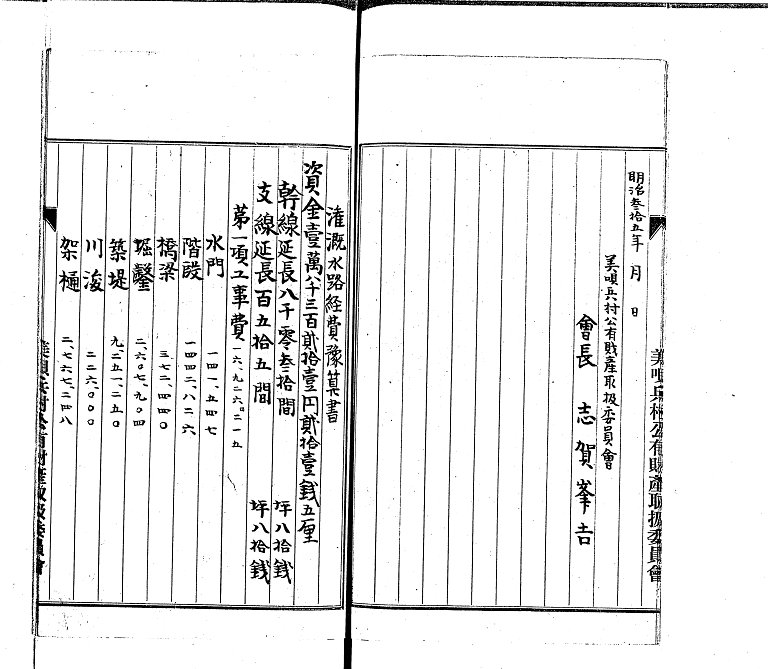 美唄兵村公有財產取扱委員會
明治叁拾五年　月　日
美唄兵村公有財產取扱委員會
會長　志賀峯吉
灌漑水路経費豫算書
資金壹萬八千三百貳拾壹円貳拾壹銭五厘
幹線延長八千零叁拾間　坪八拾銭
支線延長百五拾五間　坪八拾銭
第一項工事費　六、九二六。二一五
水門　一四一、五四七
階段　一四四二、八二六
橋梁　三七二、四四〇
堀鑿　二、六〇七、九〇四
築堤　九、二五一、二五〇
川浚　二二六、〇〇〇
架樋　二、七六七、二四八
美唄兵村公有財產取扱委員會